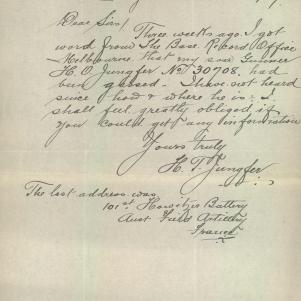 Dear Sirs!
Three weeks ago. I got
word from The Base Record Office
Melbourne that my son Gunner
H. O Jungfer No 30708. had
been gassed. I have not heard
since how & where he is. I
shall feel greatly obliged if
you could get any information
Yours truly
H. F. Jungfer.
The last address was
101st Howitzer Battery
Aust Field Artillery
France